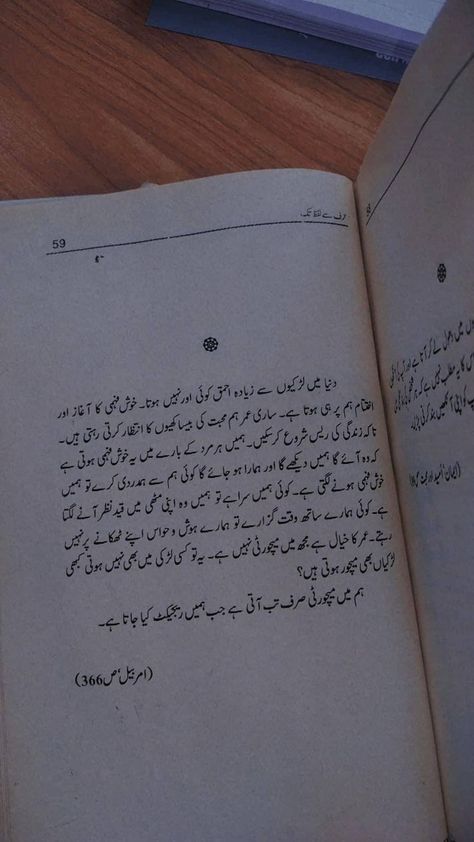 59
حرف سے لفظ تک
دنیا میں لڑکیوں سے زیادہ احمق کوئی اور نہیں ہوتا۔ خوش فہمی کا آغاز اور
اختتام ہم پر ہی ہوتا ہے۔ ساری عمر ہم محبت کی بیساکھیوں کا انتظار کرتی رہتی ہیں۔
تاکہ زندگی کی ریس شروع کر سکیں۔ ہمیں ہر مرد کے بارے میں یہ خوش فہمی ہوتی ہے
کہ وہ آئے گا ہمیں دیکھے گا اور ہمارا ہو جائے گا کوئی ہم سے ہمدردی کرے تو ہمیں
خوش فہمی ہونے لگتی ہے۔ کوئی ہمیں سراہے تو ہمیں وہ اپنی مٹھی میں قید نظر آنے لگتا
ہے۔ کوئی ہمارے ساتھ وقت گزارے تو ہمارے ہوش و حواس اپنے ٹھکانے پر نہیں
رہتے۔ عمر کا خیال ہے مجھ میں میچورٹی نہیں ہے۔ یہ تو کسی لڑکی میں بھی نہیں ہوتی کبھی
لڑکیاں بھی میچور ہوتی ہیں؟
ہم میں میچورٹی صرف تب آتی ہے جب ہمیں ریجیکٹ کیا جاتا ہے۔
(امر بیل‘ ص366)